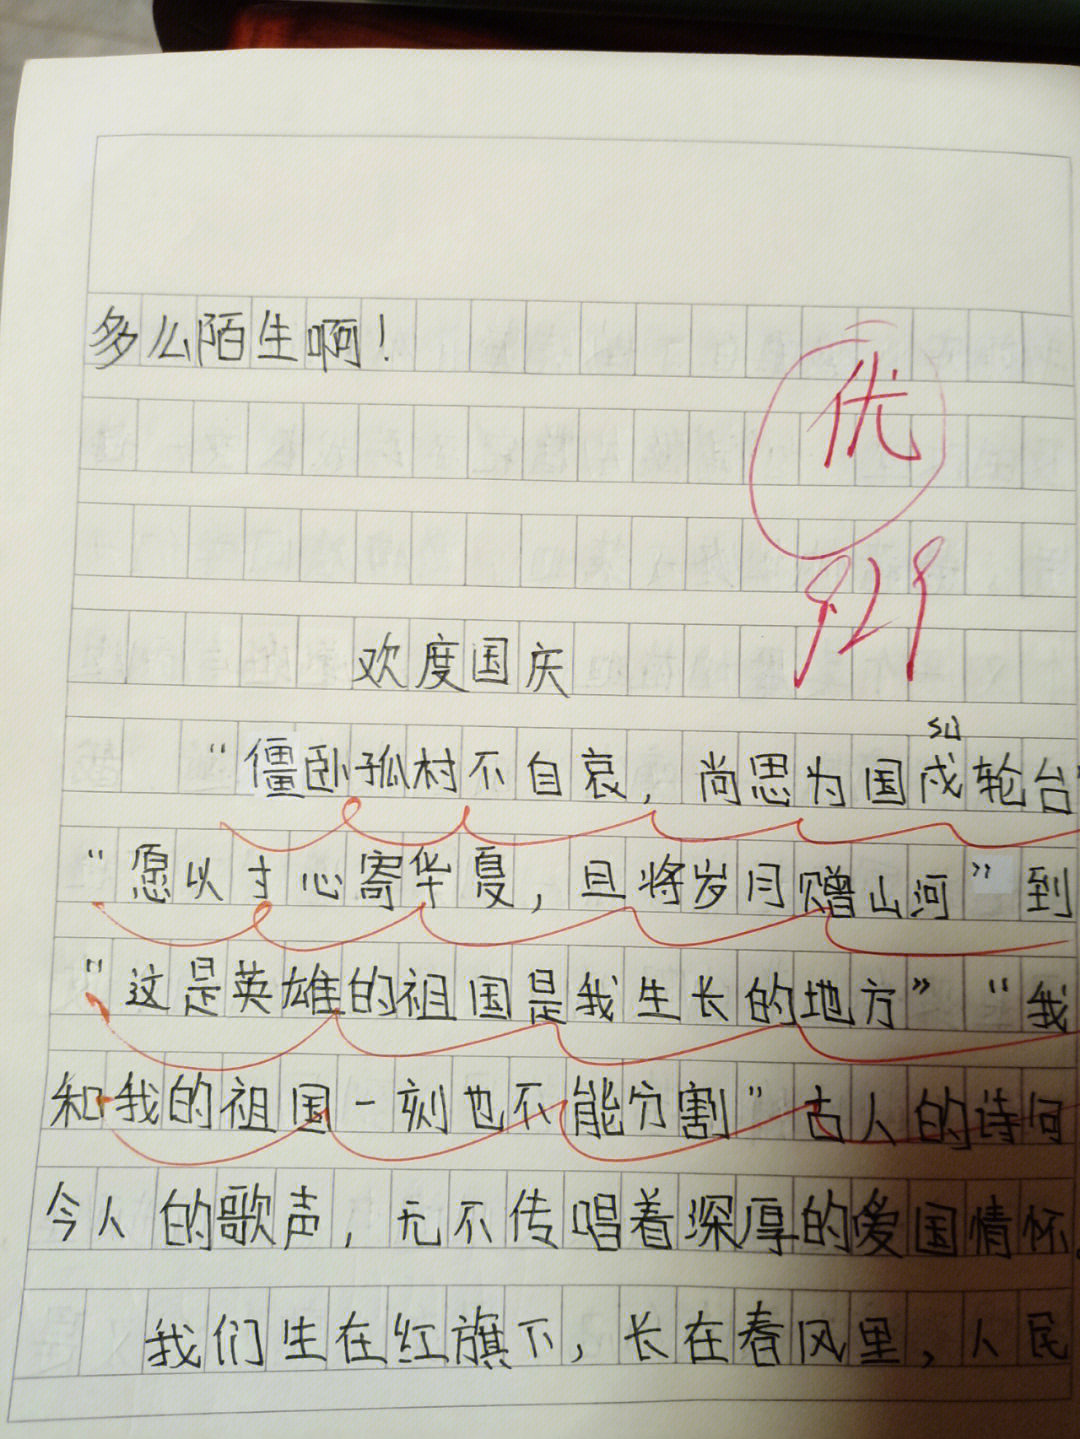 多么陌生啊!
优
9.29
欢度国庆
su
“僵卧孤村不自哀,尚思为国戍轮台”
“愿以寸心寄华夏,且将岁月赠山河”到
“这是英雄的祖国是我生长的地方”“我
和我的祖国一刻也不能分割”古人的诗词
今人的歌声,无不传唱着深厚的爱国情怀.
我们生在红旗下,长在春风里,人民